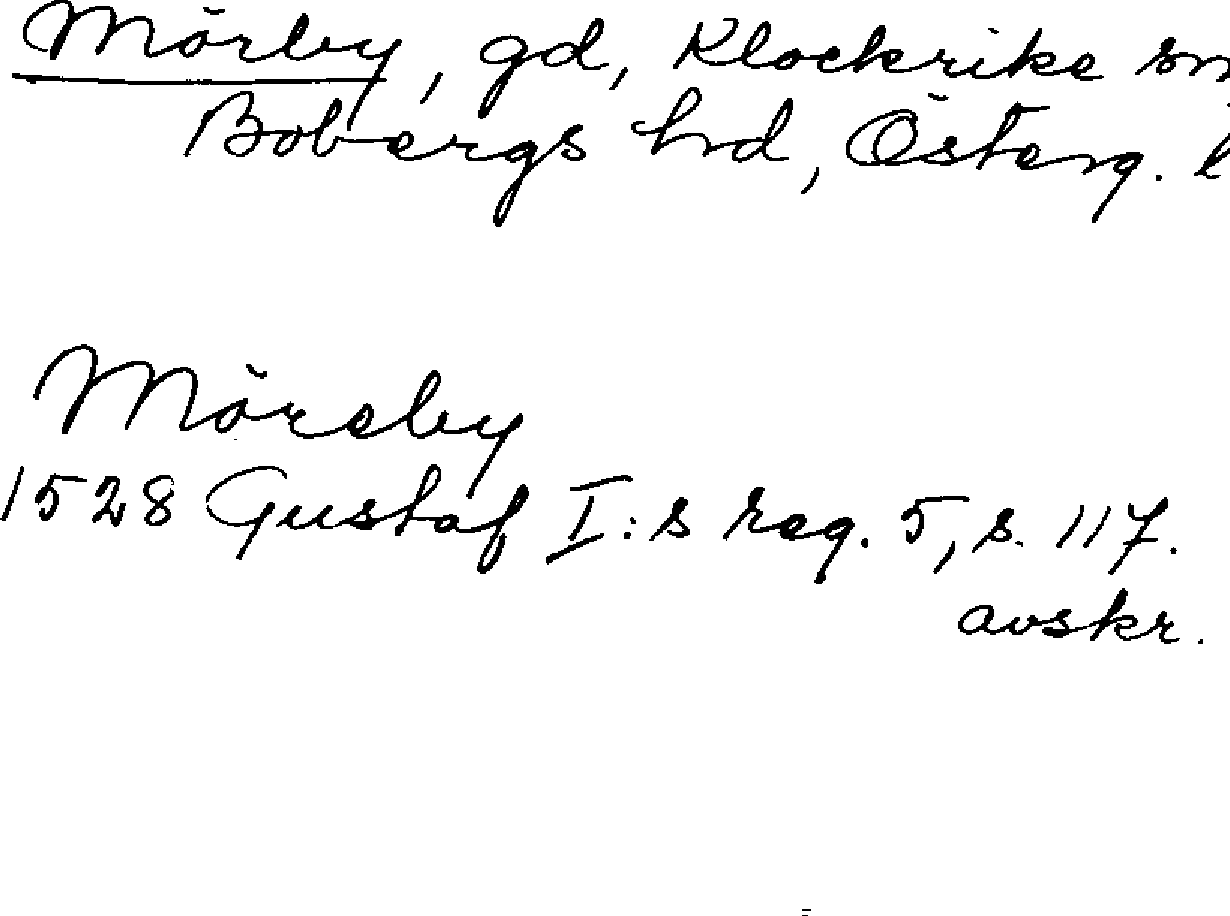 Mörby, gd, Klockrike sn,
Bobergs hd, Österg. l
Möreby
1528 Gustaf I:s reg. 5, s. 117.
avskr.